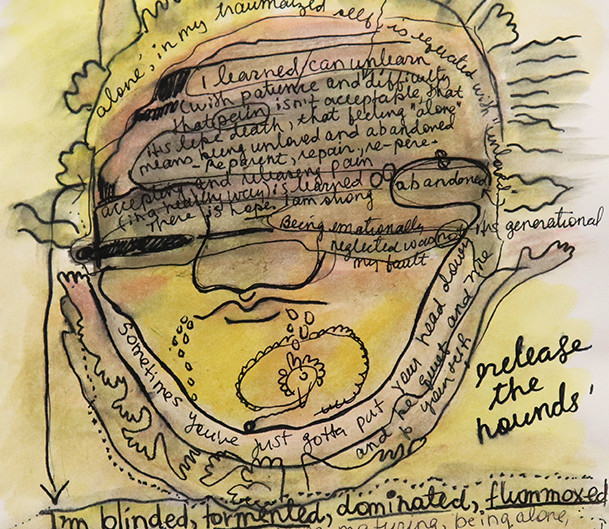 alone', in my traumatized self is equated with "unloved"
I learned/can unlearn
(with patience and difficulty
that pain isn't acceptable, that
its like death, that feeling "alone"
means being unloved and abandoned
- Reparent, repair, re-pere-
accepting and releasing pain
(in a healthy way) is learned
abandoned
There is hope, I am strong
Being emotionally
neglected was not
my fault
its generational
Sometimes you've just gotta put your head down
and be quiet and
release
the
hounds'
I'm blinded, tormented, dominated, flummoxed
maturing, being alone